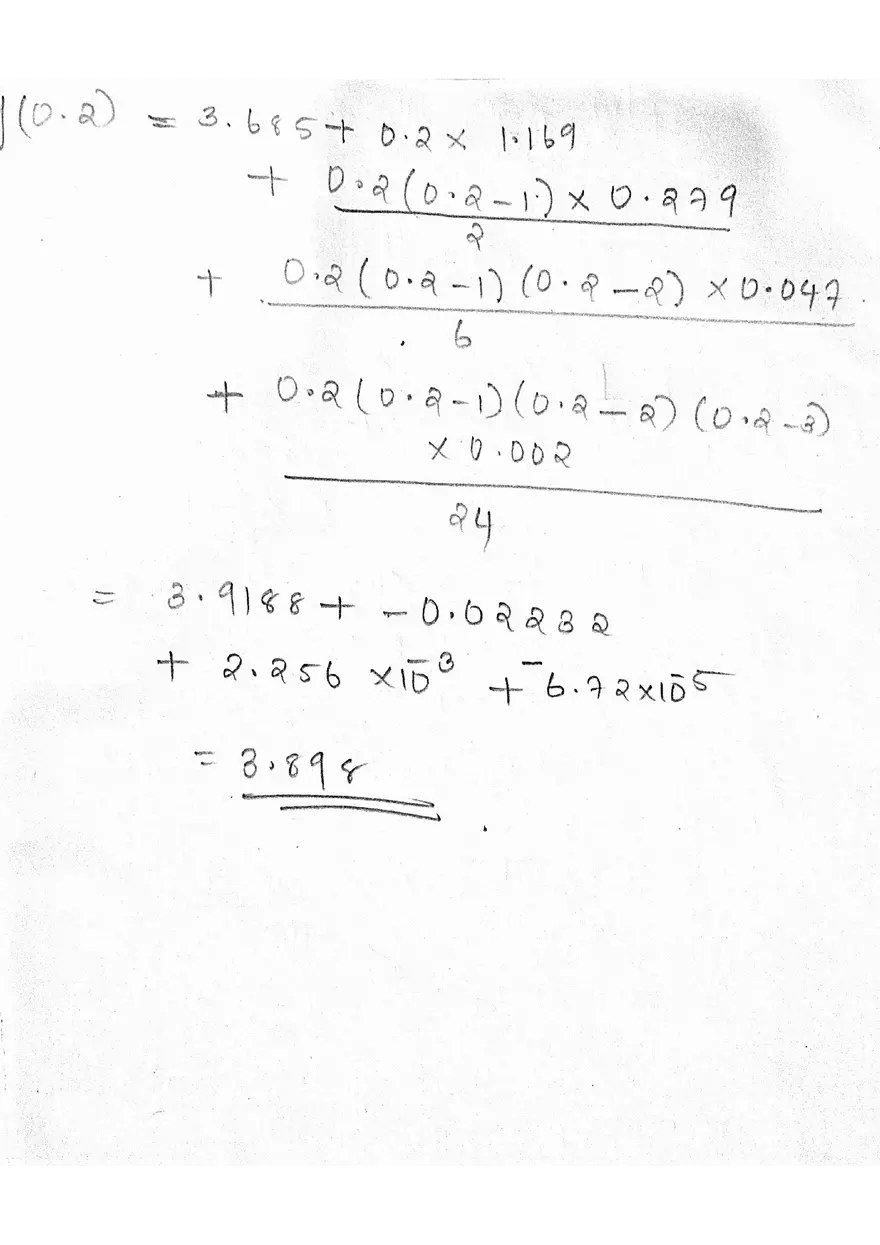 y(0.2) = 3.685 + 0.2 × 1.169
+ 0.2(0.2-1) × 0.279
2
+ 0.2(0.2-1)(0.2-2) × 0.047
6
+ 0.2(0.2-1)(0.2-2)(0.2-3)
× 0.002
24
= 3.9188 + -0.02232
+ 2.256 × 10⁻³ + ⁻6.72×10⁻⁵
= 3.898